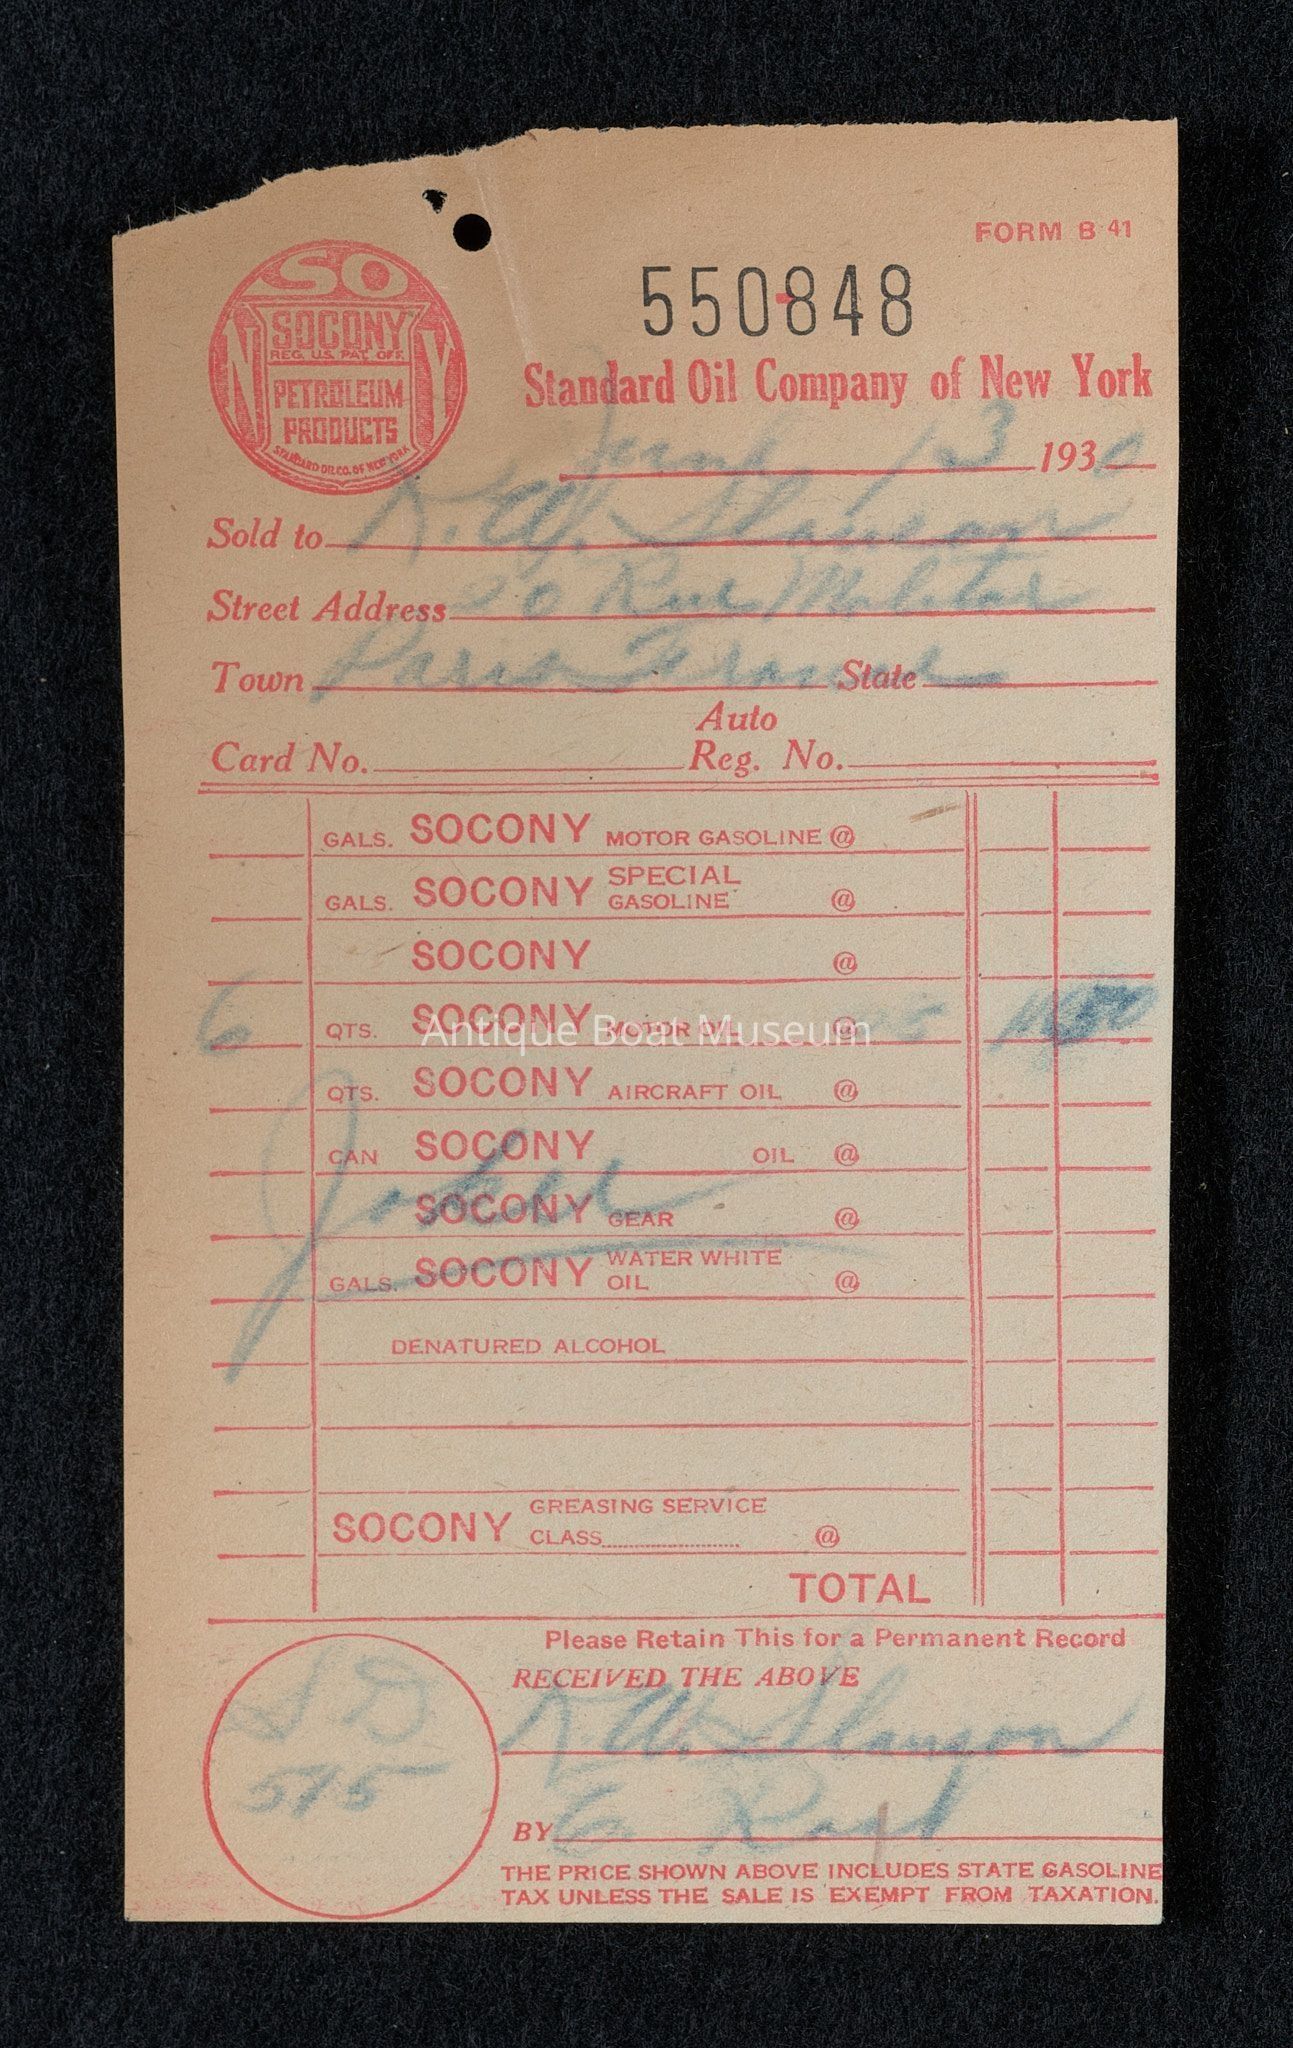 FORM B 41
SO
NY
SOCONY
REG. U.S. PAT. OFF.
PETROLEUM
PRODUCTS
STANDARD OIL CO. OF NEW YORK
550848
Standard Oil Company of New York
June 13 1930
Sold to K. W. Slauson
Street Address 20 Rue
Town Paris France State
Auto
Card No. Reg. No.
GALS. SOCONY MOTOR GASOLINE @
GALS. SOCONY SPECIAL GASOLINE @
SOCONY @
6 QTS. SOCONY MOTOR OIL @
Antique Boat Museum
QTS. SOCONY AIRCRAFT OIL @
CAN SOCONY OIL @
SOCONY GEAR @
GALS. SOCONY WATER WHITE OIL @
DENATURED ALCOHOL
SOCONY GREASING SERVICE
CLASS @
TOTAL
Please Retain This for a Permanent Record
RECEIVED THE ABOVE
K. W. Slauson
SD
515
BY
THE PRICE SHOWN ABOVE INCLUDES STATE GASOLINE
TAX UNLESS THE SALE IS EXEMPT FROM TAXATION.